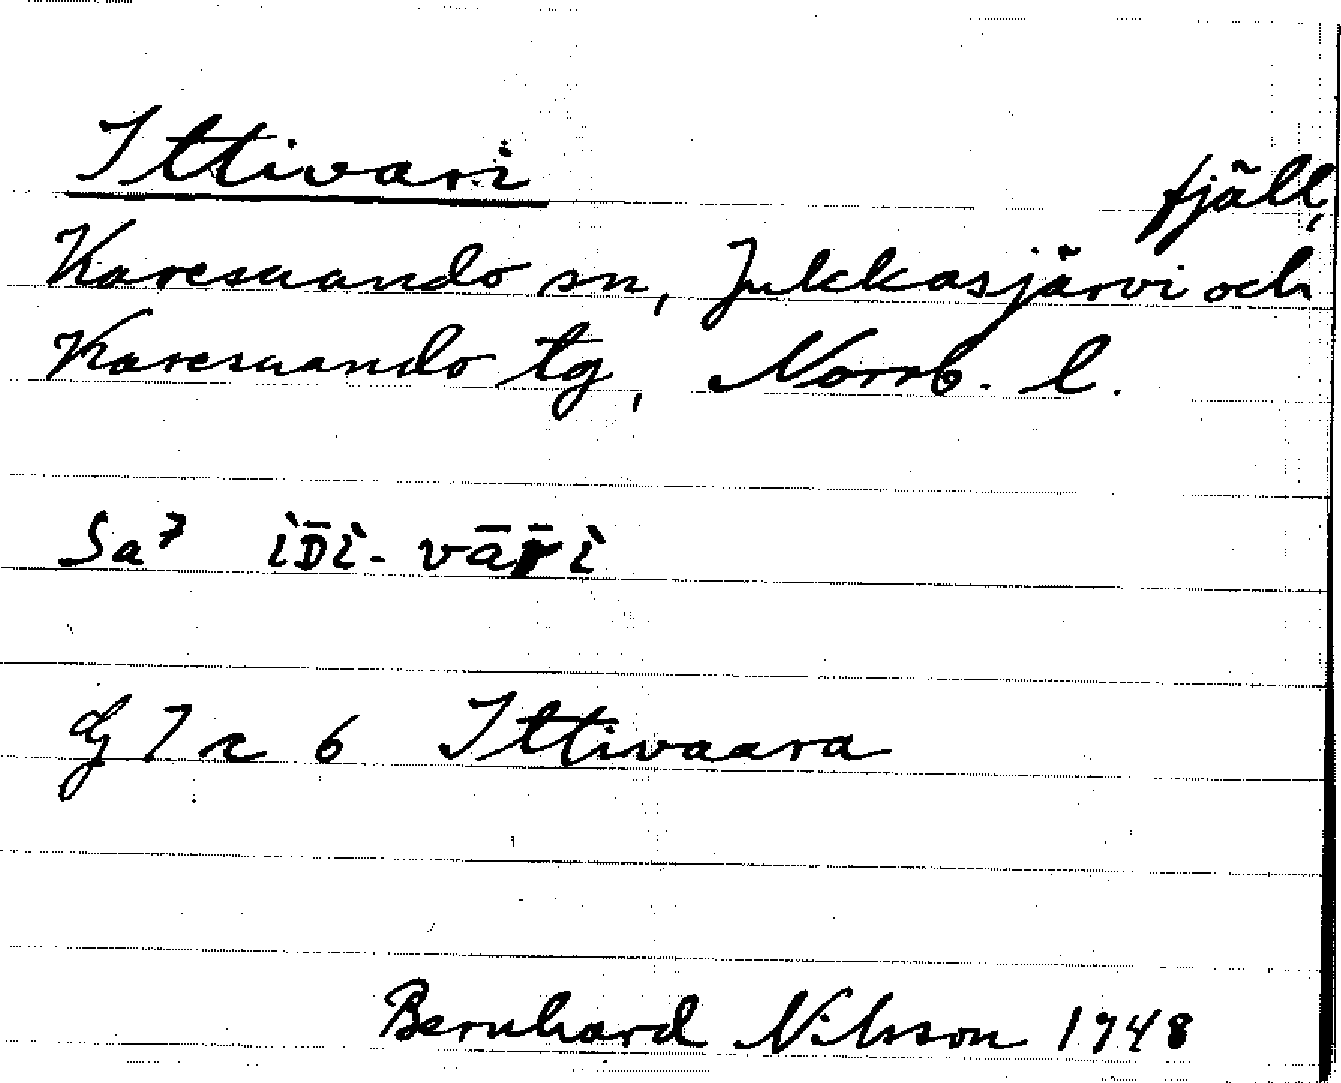 Ittivari fjäll,
Karesuando sn, Jukkasjärvi och
Karesuando tg, Norrb. l.
Sa⁷ ìD̄ì-vār̄ì
dj 7 c 6 Ittivaara
Bernhard Nilsson 1948